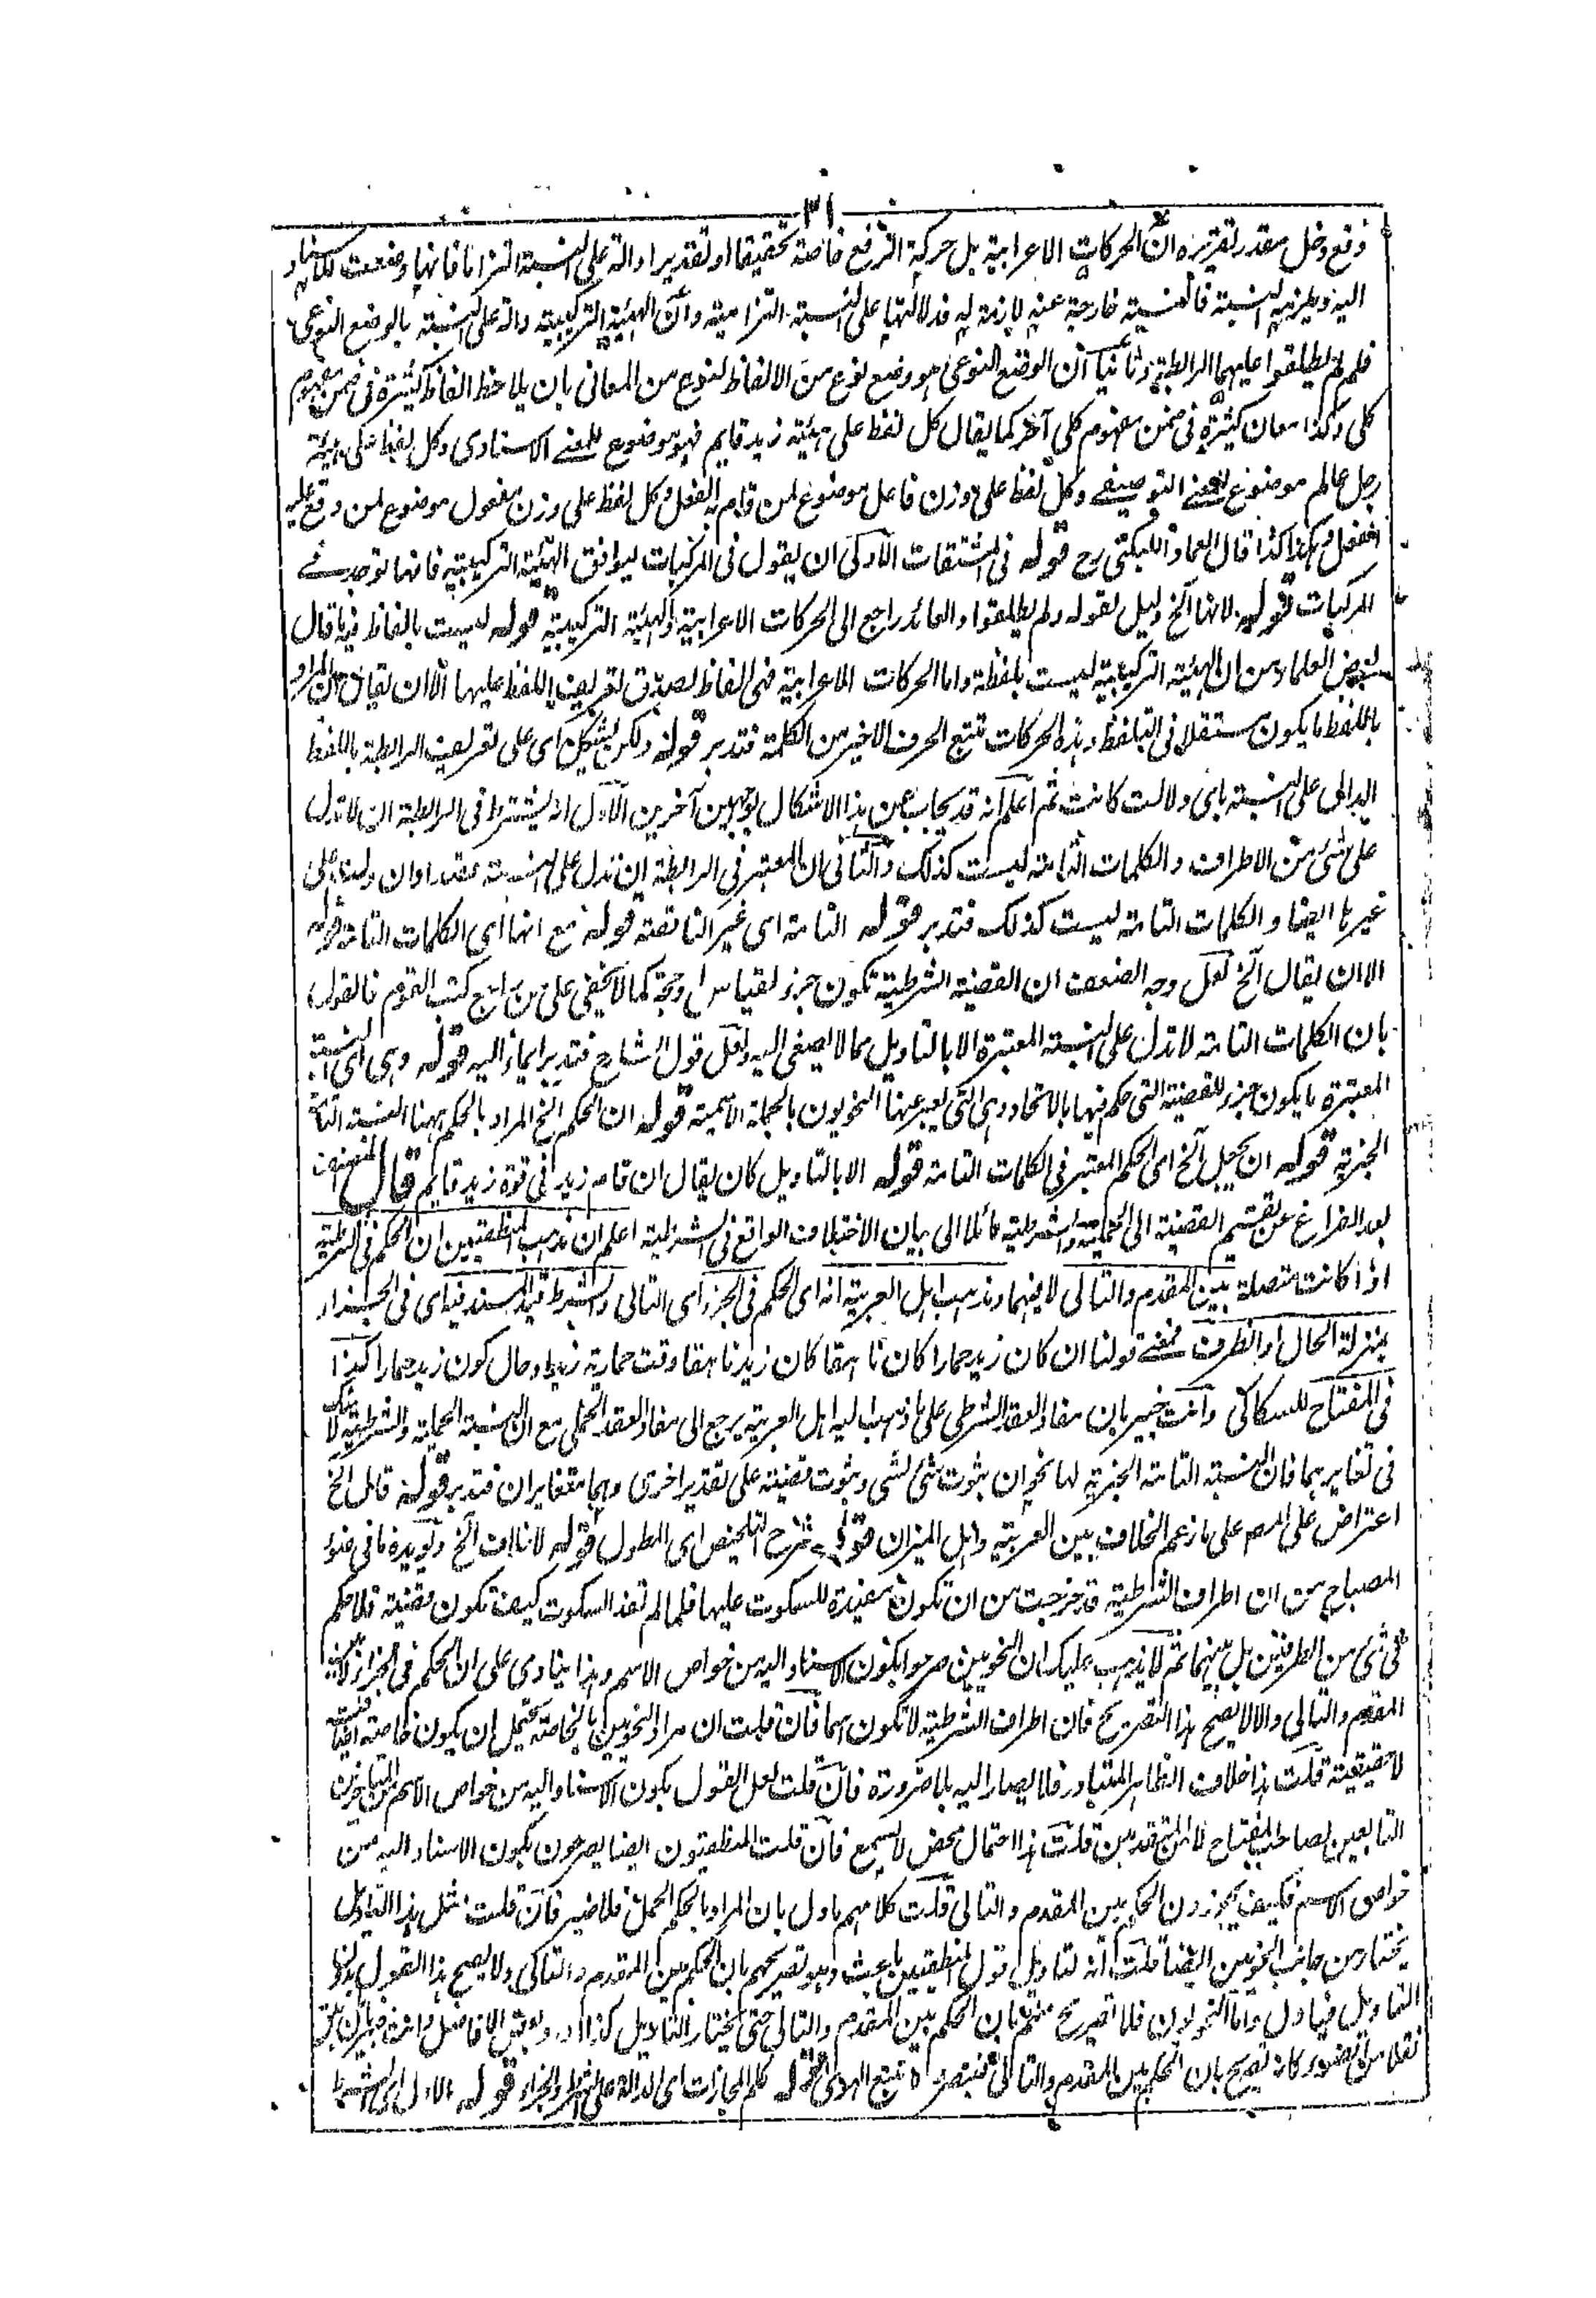 ٣١
دفع دخل مقدر تقريره ان الحركات الاعرابية بل حركة الرفع خاصة تحقيقا او تقديرا دالة على النسبة التزاما فانها وضعت للاسناد
اليه ويلزمه النسبة فالنسبة خارجة عنه لازمة له فدلالتها على النسبة التزامية وان الهيئة التركيبية دالة على النسبة بالوضع النوعى
فلم لم يطلقوا عليهما الرابطة وثانيا ان الوضع النوعى هو وضع نوع من الالفاظ لنوع من المعانى بان يلاحظ الفاظ كثيرة فى ضمن مفهوم
كلى وكذا معان كثيرة فى ضمن مفهوم كلى آخر كما يقال كل لفظ على هيئة زيد قايم فهو موضوع للمعنے الاسنادى وكل لفظ على هيئة
رجل عالم موضوع للمعنے التوصيفے وكل لفظ على وزن فاعل موضوع لمن قام به الفعل وكل لفظ على وزن مفعول موضوع لمن وقع عليه
الفعل وهكذا كذا قال العماد اللبكنى رح قوله فى المشتقات الاولى ان يقول فى المركبات ليوافق الهيئة التركيبية فانها توجد فے
المركبات قوله لانها الخ دليل لقوله ولم يطلقوا والعائد راجع الى الحركات الاعرابية والهيئة التركيبية قوله ليست بالفاظ فيه ما قال
بعض العلماء من ان الهيئة التركيبية ليست بلفظة واما الحركات الاعرابية فهى الفاظ لصدق تعريف اللفظ عليها الا ان يقال ان المراد
باللفظ ما يكون مستقلا فى التلفظ وهذه الحركات تتبع الحرف الاخير من الكلمة فتدبر قوله ولكن يشكل اى على تعريف الرابطة باللفظ
الدال على النسبة باى دلالت كانت ثم اعلم انه قد يجاب عن هذا الاشكال بوجهين آخرين الاول انه يشترط فى الرابطة ان لا تدل
على شئ من الاطراف والكلمات التامة ليست كذلك والثانى ان المعتبر فى الرابطة ان تدل على النسبة قصدا وان دلت على
غيرها ايضا والكلمات التامة ليست كذلك فتدبر قوله التامة اى غير الناقصة قوله مع انها اى الكلمات التامة قوله
الا ان يقال الخ لعل وجه الضعف ان القضية الشرطية تكون جزء لقياس وحجة كما لا يخفى على من راجع كتب القوم فالقول
بان الكلمات التامة لا تدل على النسبة المعتبرة الا بالتاويل مما لا يصغى اليه ولعل قول الشارح فتدبر ايماء اليه قوله وهى اى النسبة
المعتبرة ما يكون جزء للقضية التى حكم فيها بالاتحاد وهى التى يعبر عنها النحويون بالجملة الاسمية قوله ان الحكم الخ المراد بالحكم ههنا النسبة التامة
الخبرية قوله ان يجعل الخ اى الحكم المعتبر فى الكلمات التامة قوله الا بالتاويل كان يقال ان قام زيد فى قوة زيد قايم قال المصنف
بعد الفراغ عن تقسيم القضية الى الحملية والشرطية مائلا الى بيان الاختلاف الواقع فى الشرطية اعلم ان مذهب المنطقيين ان الحكم فى الشرطية
اذا كانت متصلة بين المقدم والتالى لا فيهما ومذهب اهل العربية انه اى الحكم فى الجزء اى التالى والشرط قيد المسند فيه اى فى الجزاء
بمنزلة الحال او الظرف فمعنے قولنا ان كان زيد حمارا كان ناهقا كان زيد ناهقا وقت حمارية زيد او حال كون زيد حمارا كذا
فى المفتاح للسكاكى وانت خبير بان مفاد العقد الشرطى على ما ذهب اليه اهل العربية يرجع الى مفاد العقد الحملى مع ان النسبة الحملية والشرطية لا شك
فى تغايرهما فان النسبة التامة الخبرية لها نحوان ثبوت شئ لشئ وثبوت قضية على تقدير اخرى وهما متغايران فتدبر قوله قائل الخ
اعتراض على المصـ على ما زعم الخلاف بين العربية واهل الميزان قوله شرح التلخيص اى المطول قوله لا خلاف الخ ويؤيده ما فى ضوء
المصباح من ان اطراف الشرطية قد خرجت من ان تكون مفيدة للسكوت عليها فلما لم تفد السكوت كيف تكون قضية فلا حكم
فى شئ من الطرفين بل بينهما ثم لا يذهب عليك ان النحويين صرحوا بكون الاسناد اليه من خواص الاسم وهذا ينادى على ان الحكم فى الجزاء لا بين
المقدم والتالى والا لا يصح هذا التصريح فان اطراف الشرطية لا تكون اسما فان قلت ان مراد النحويين بالخاصة يحتمل ان يكون خاصة اضافية
لا حقيقية قلت هذا خلاف الظاهر المتبادر فلا يصار اليه بلا ضرورة فان قلت لعل القول بكون الاسناد اليه من خواص الاسم من المتاخرين
التابعين لصاحب المفتاح لا المتقدمين قلت هذا احتمال محض لا يسمع فان قلت المنطقيون ايضا يصرحون بكون الاسناد اليه من
خواص الاسم فكيف يجوزون الحكم بين المقدم والتالى قلت كلامهم ماول بان المراد بالحكم الحملى فلا ضير فان قلت مثل هذا التاويل
يختار من جانب النحويين ايضا قلت انه لتاويل قول المنطقيين باعث وهو تصريحهم بان الحكم بين المقدم والتالى ولا يصح هذا القول بدون
التاويل فياول واما النحويون فلا تصريح منهم بان الحكم بين المقدم والتالى حتى يختار التاويل كذا افاد بعض الافاضل وانت خبير بان ما
نقلنا من الضوء كانه تصريح بان الحكم بين المقدم والتالى فتبصر ولا تتبع الهوى قوله كلم المجازات اى الدالة على الشرط والجزاء قوله الاول اى الشرط